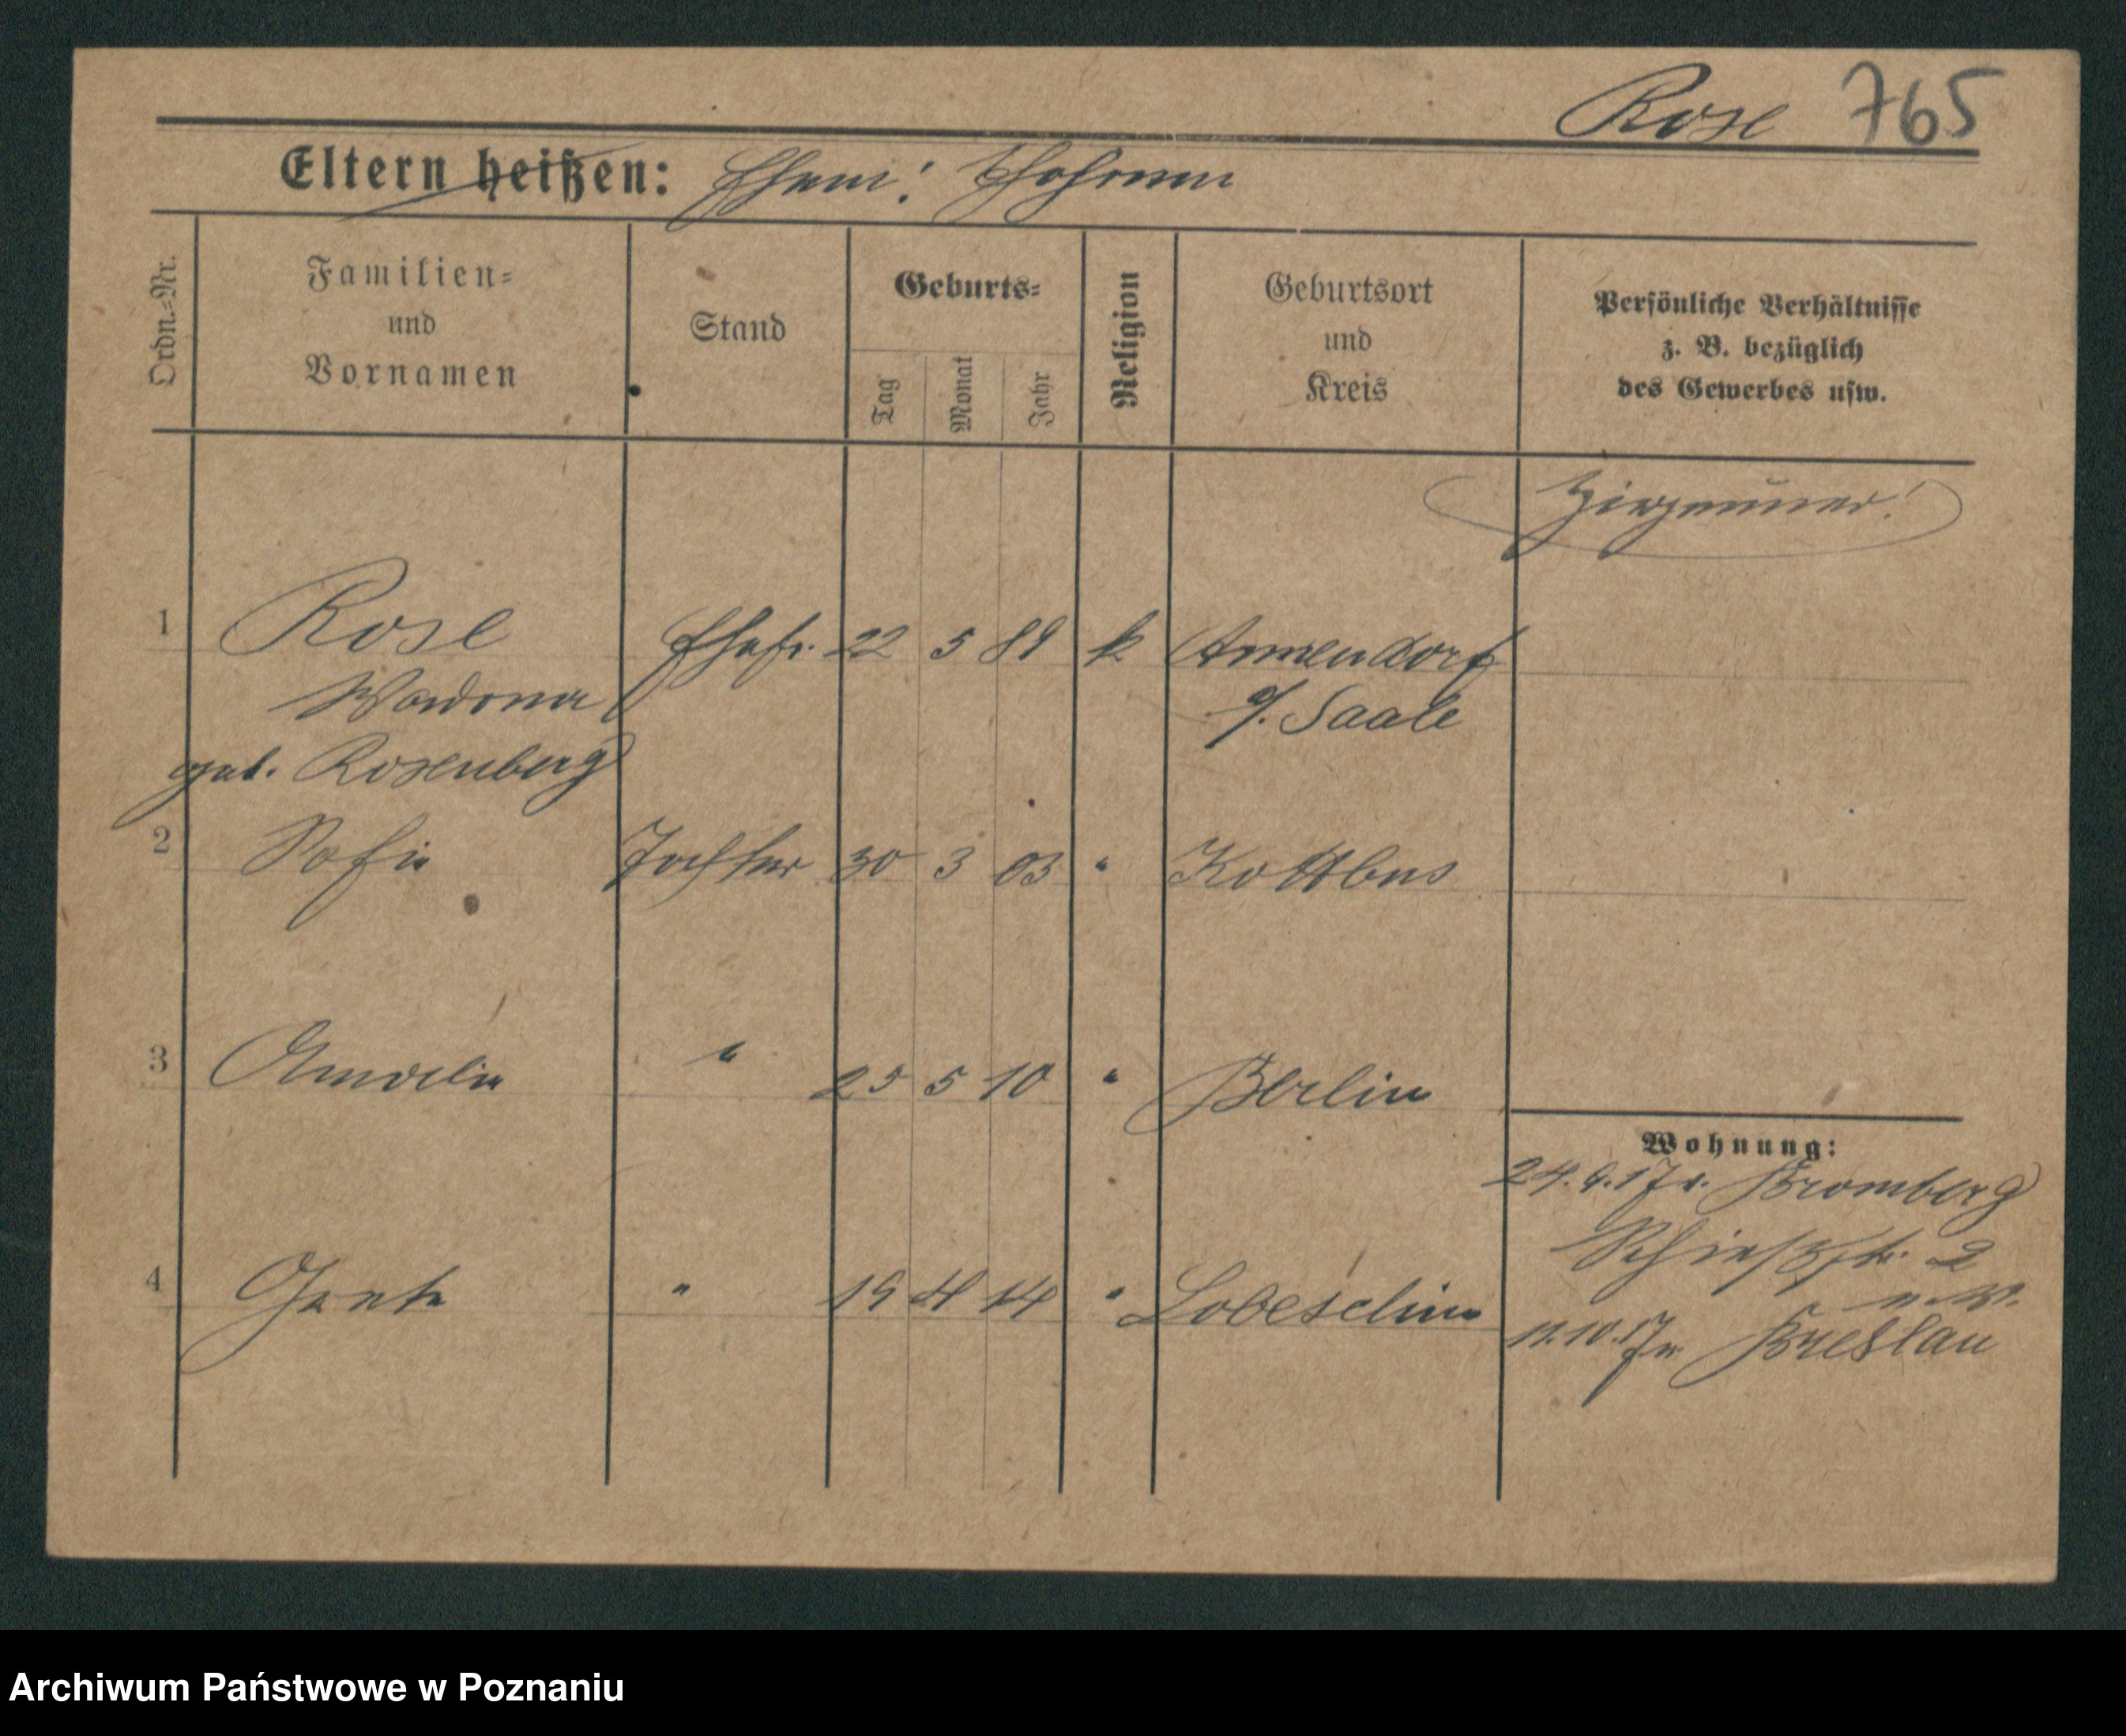 Rose 765
Eltern heißen: Ehem: Johann
Ordn.=Nr.
Familien=
und
Vornamen
Stand
Geburts=
Tag
Monat
Jahr
Religion
Geburtsort
und
Kreis
Persönliche Verhältnisse
z. B. bezüglich
des Gewerbes usw.
Zigeuner!
1 Rose Ehefr. 22 5 89 k Ammendorf
a/. Saale
geb. Rosenberg
2 Sofie Tochter 30 3 03 " Kottbus
3 " 25 5 10 " Berlin
Wohnung:
Bromberg
Schießstr. 2
4 " 19 4 14 "
11.10.17 n Breslau
Archiwum Państwowe w Poznaniu